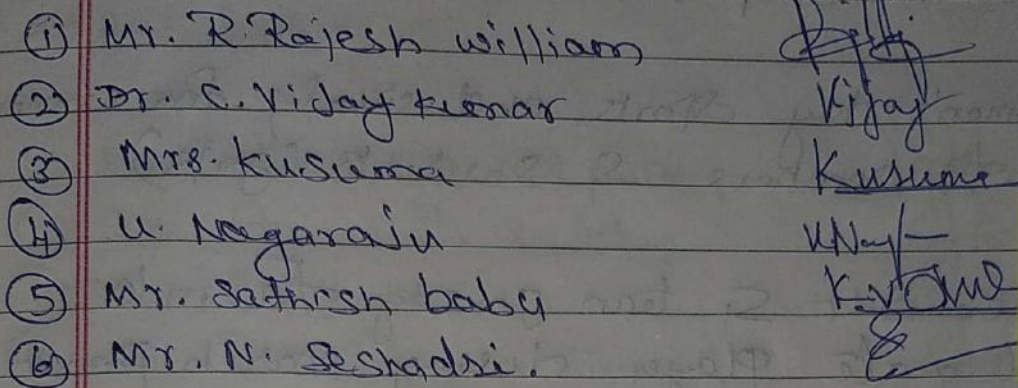 ① Mr. R. Rajesh William
② Dr. C. Vijay Kumar Vijay
③ Mrs. Kusuma Kusuma
④ U. Nagaraju
⑤ Mr. Sathish babu
⑥ Mr. N. Seshadri.